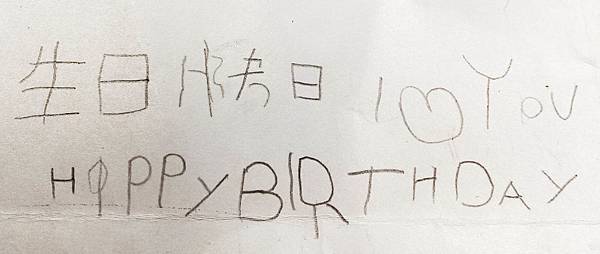 生日快日 I ♡ YOU
HAPPYBIRTHDAY